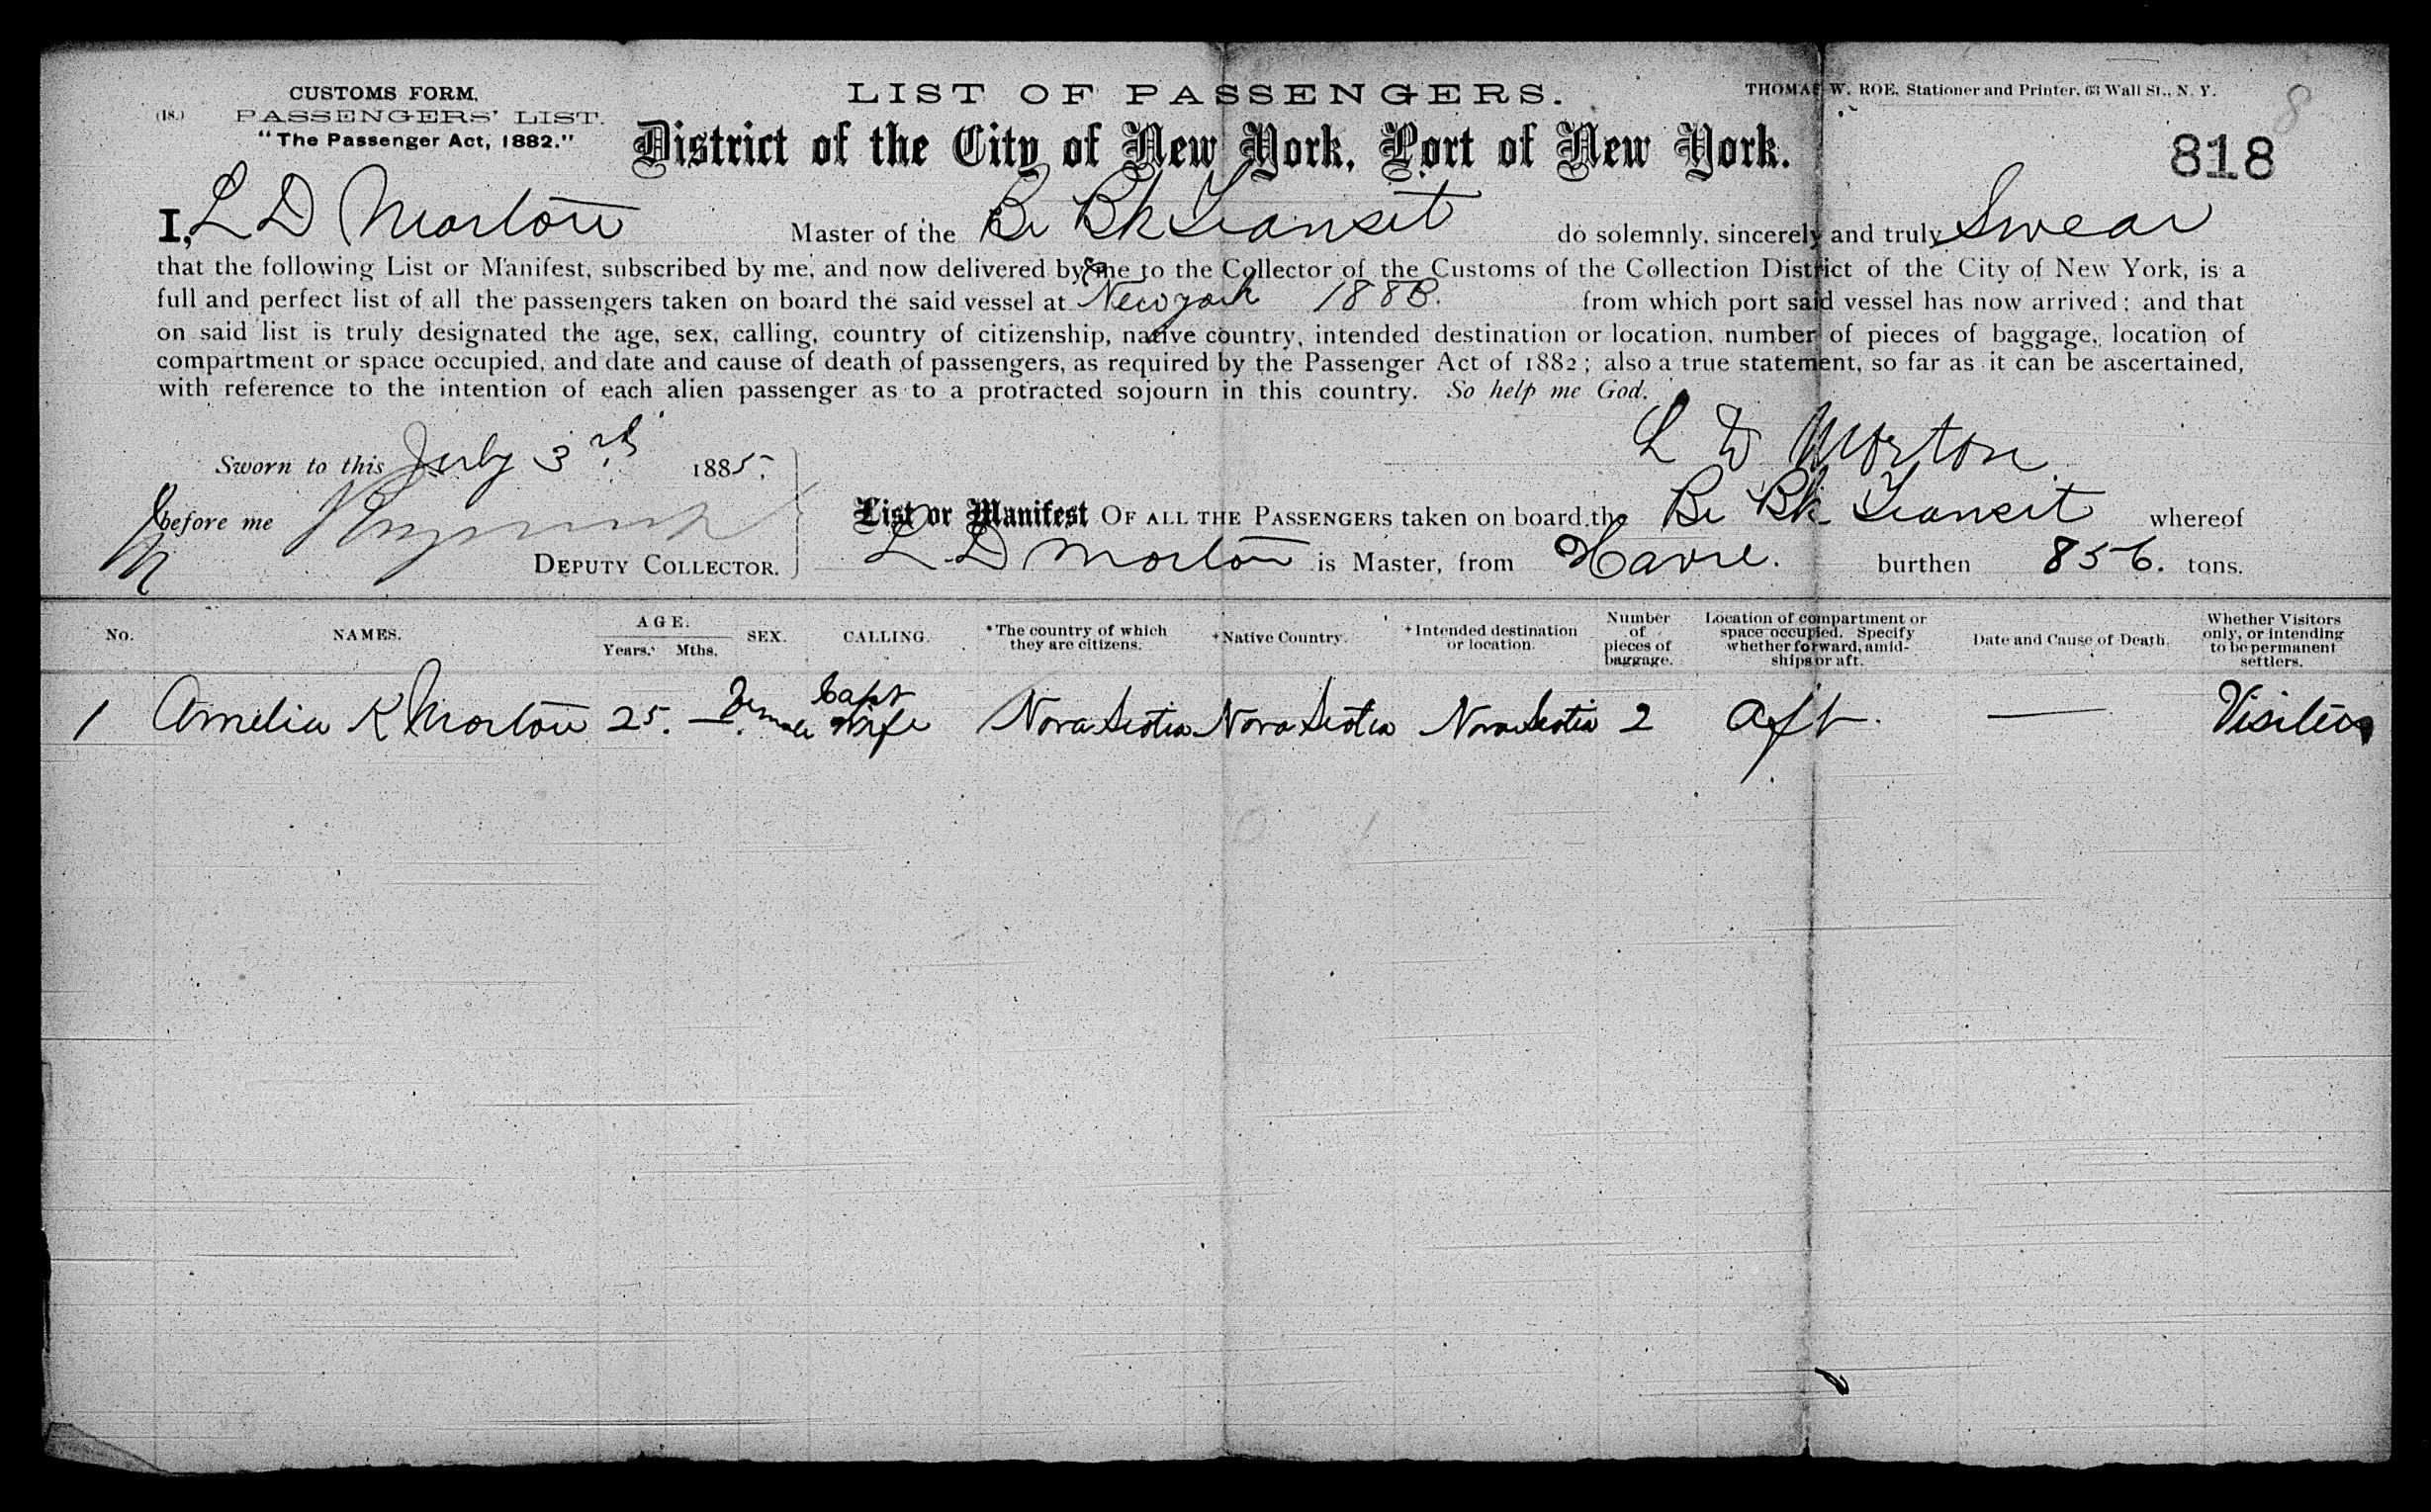 CUSTOMS FORM.
(18.) PASSENGERS' LIST.
"The Passenger Act, 1882."
LIST OF PASSENGERS.
THOMAS W. ROE, Stationer and Printer, 63 Wall St., N. Y.
8
District of the City of New York, Port of New York.
818
I, L D Morton Master of the Br Bk Transit do solemnly, sincerely and truly Swear
that the following List or Manifest, subscribed by me, and now delivered by me to the Collector of the Customs of the Collection District of the City of New York, is a
full and perfect list of all the passengers taken on board the said vessel at New york 188 from which port said vessel has now arrived; and that
on said list is truly designated the age, sex, calling, country of citizenship, native country, intended destination or location, number of pieces of baggage, location of
compartment or space occupied, and date and cause of death of passengers, as required by the Passenger Act of 1882; also a true statement, so far as it can be ascertained,
with reference to the intention of each alien passenger as to a protracted sojourn in this country. So help me God.
L D Morton
Sworn to this July 3rd 1885.
before me
DEPUTY COLLECTOR.
List or Manifest OF ALL THE PASSENGERS taken on board the Br Bk Transit whereof
L D Morton is Master, from Havre. burthen 856. tons.
No. NAMES. AGE. Years. Mths. SEX. CALLING. *The country of which they are citizens. +Native Country. +Intended destination or location. Number of pieces of baggage. Location of compartment or space occupied. Specify whether forward, amidships or aft. Date and Cause of Death. Whether Visitors only, or intending to be permanent settlers.
1 Amelia K Morton 25. — Female Capt Wife Nova Scotia Nova Scotia Nova Scotia 2 Aft — Visitors